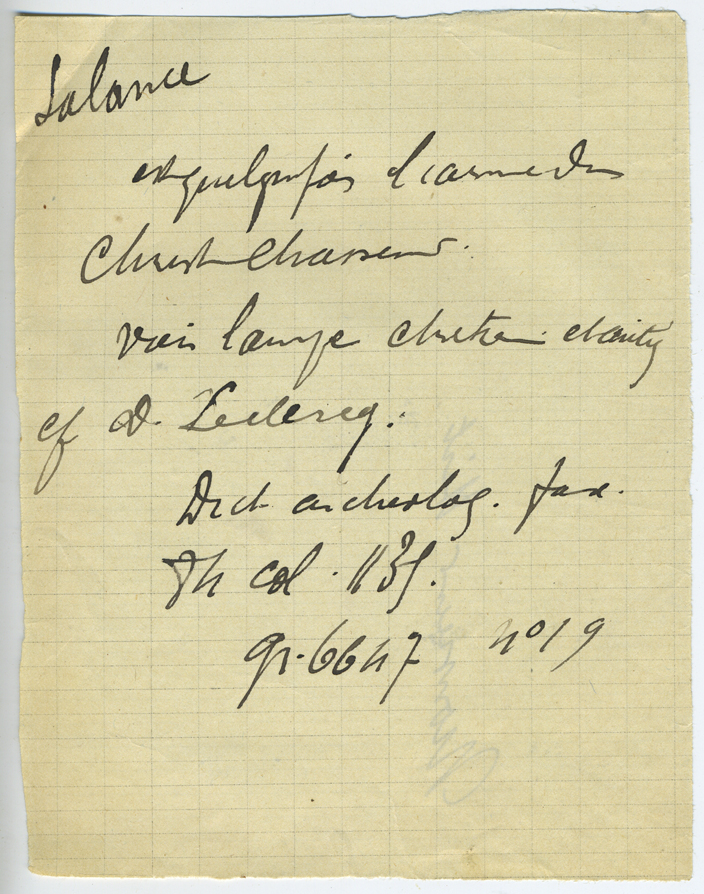 La lance
est quelquefois l'arme du
Christ Chasseur.
voir lampe chretien
cf D. Leclercq.
Dict archeolog. fasc.
col. 1135.
gr. 6647 n° 19